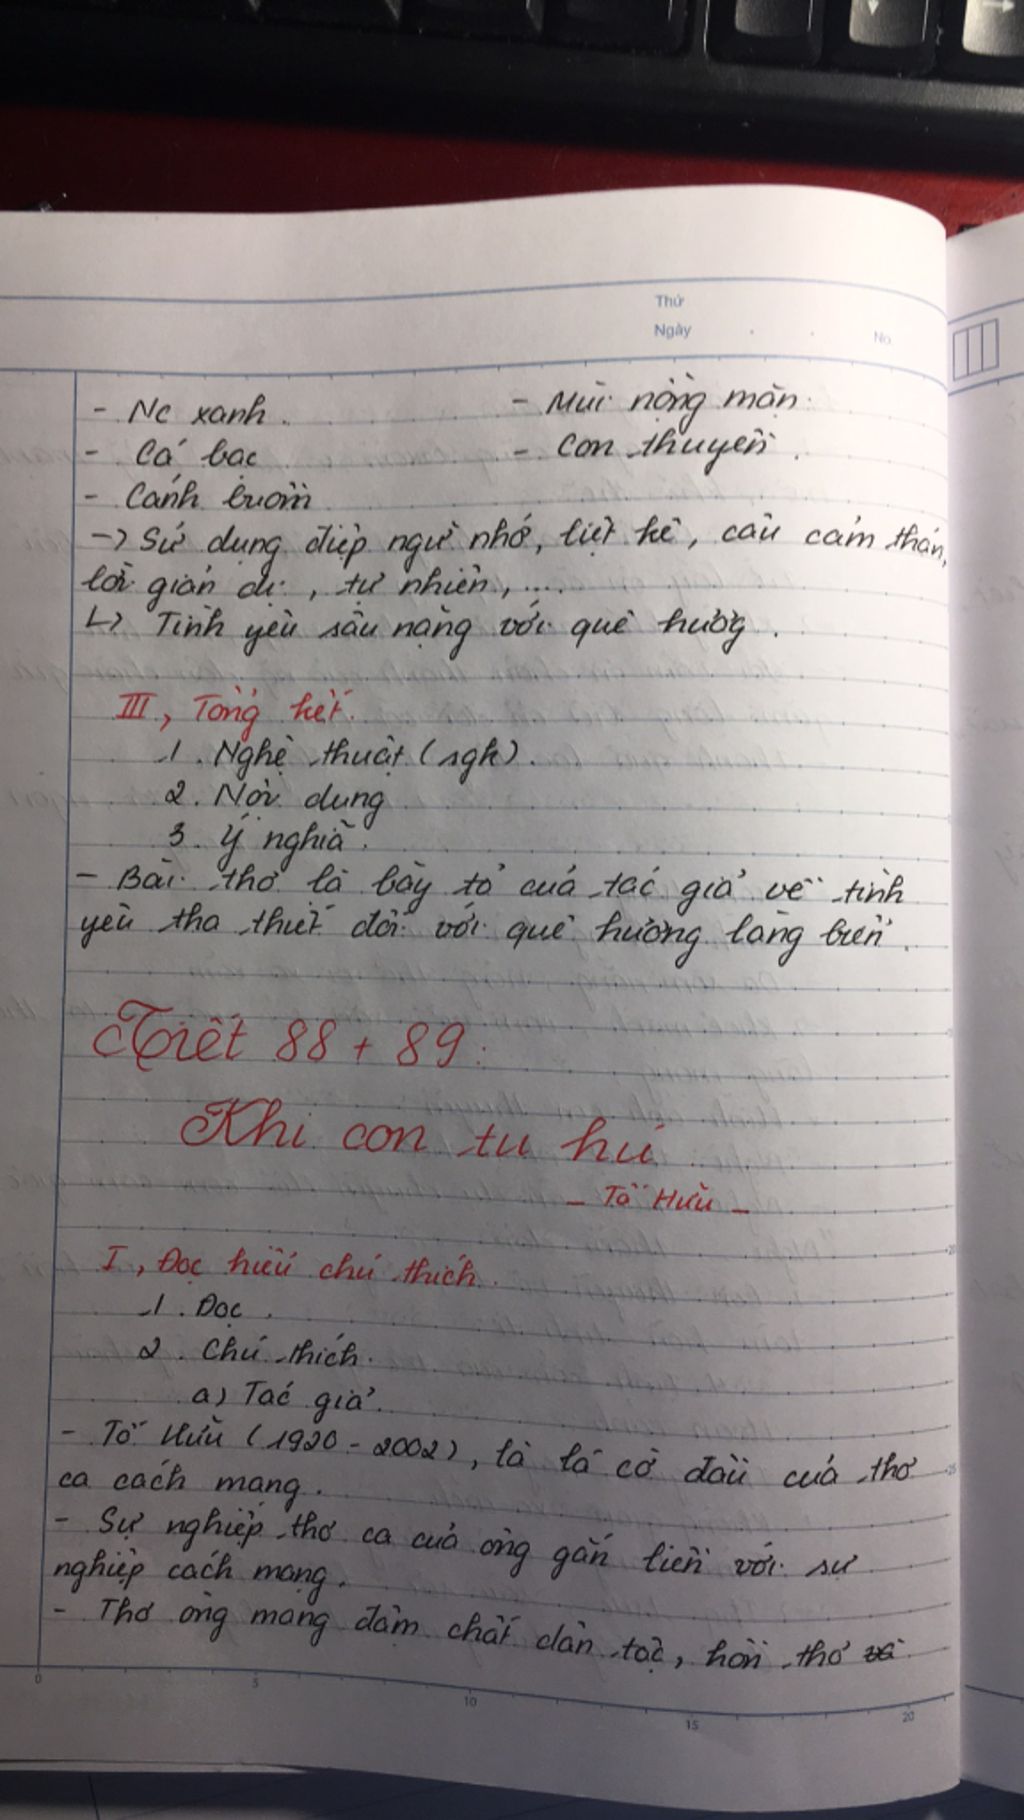 Thứ
Ngày
No.
- Nc xanh. - Mùi nồng mặn.
- Cá bạc - Con thuyền.
- Cánh buồm
-> Sử dụng điệp ngữ nhớ, liệt kê, câu cảm thán,
lời giản dị, tự nhiên,....
↳ Tình yêu sâu nặng với quê hương.
III, Tổng kết.
1. Nghệ thuật (sgk).
2. Nội dung
3. Ý nghĩa.
- Bài thơ là bày tỏ của tác giả về tình
yêu tha thiết đối với quê hương làng biển.
Tiết 88 + 89:
Khi con tu hú
- Tố Hữu -
I, Đọc hiểu chú thích.
1. Đọc.
2. Chú thích.
a) Tác giả.
- Tố Hữu (1920 - 2002), là lá cờ đầu của thơ
ca cách mạng.
- Sự nghiệp thơ ca của ông gắn liền với sự
nghiệp cách mạng.
- Thơ ông mang đậm chất dân tộc, hồn thơ
0 5 10 15 20